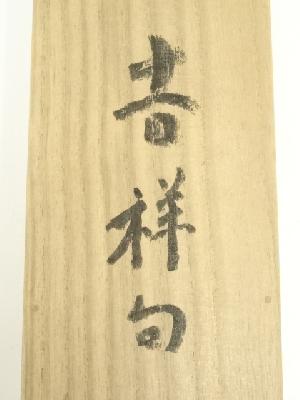 吉祥句